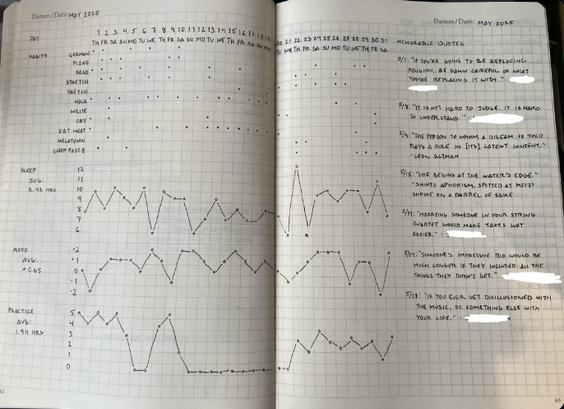 Datum/Date: MAY 2025
DAY
1 2 3 4 5 6 7 8 9 10 11 12 13 14 15 16 17 18 19
TH FR SA SU MO TU WE TH FR SA SU MO TU WE TH FR SA SU
HABITS
GERMAN
PIANO
READ
STRETCH
WALK
WRITE
CRY
EAT MEAT
MELATONIN
SLEEP PAST 8
SLEEP
AVG:
8.42 HRS
12
11
10
9
8
7
6
MOOD
AVG:
+0.65
+2
+1
0
-1
-2
PRACTICE
AVG:
1.94 HRS
5
4
3
2
1
0
62
Datum/Date: MAY 2025
20 21 22 23 24 25 26 27 28 29 30 31
TU WE TH FR SA SU MO TU WE TH FR SA
MEMORABLE QUOTES
5/1: "IF YOU'RE GOING TO BE REPLACING
RELIGION, BE DAMN CAREFUL OF WHAT
YOU'RE REPLACING IT WITH."
5/8: "IT IS NOT HARD TO JUDGE. IT IS HARD
TO UNDERSTAND." -
5/9: "THE PERSON TO WHOM A DREAM IS TOLD
PLAYS A ROLE IN [ITS] LATENT CONTENT."
- LEON ALTMAN
5/15: "LIFE BEGINS AT THE WATER'S EDGE."
- SHINTO APHORISM, SPOTTED AT MEIJI
SHRINE ON A BARREL OF SAKE
5/17: "MARRYING SOMEONE IN YOUR STRING
QUARTET WOULD MAKE TAXES
EASIER." -
5/27: "SOMEONE'S IMPRESSIVE BIO WOULD BE
MUCH LONGER IF THEY INCLUDED ALL THE
THINGS THEY DIDN'T GET." -
5/28: "IF YOU EVER GET DISILLUSIONED WITH
THE MUSIC, DO SOMETHING ELSE WITH
YOUR LIFE." -
63